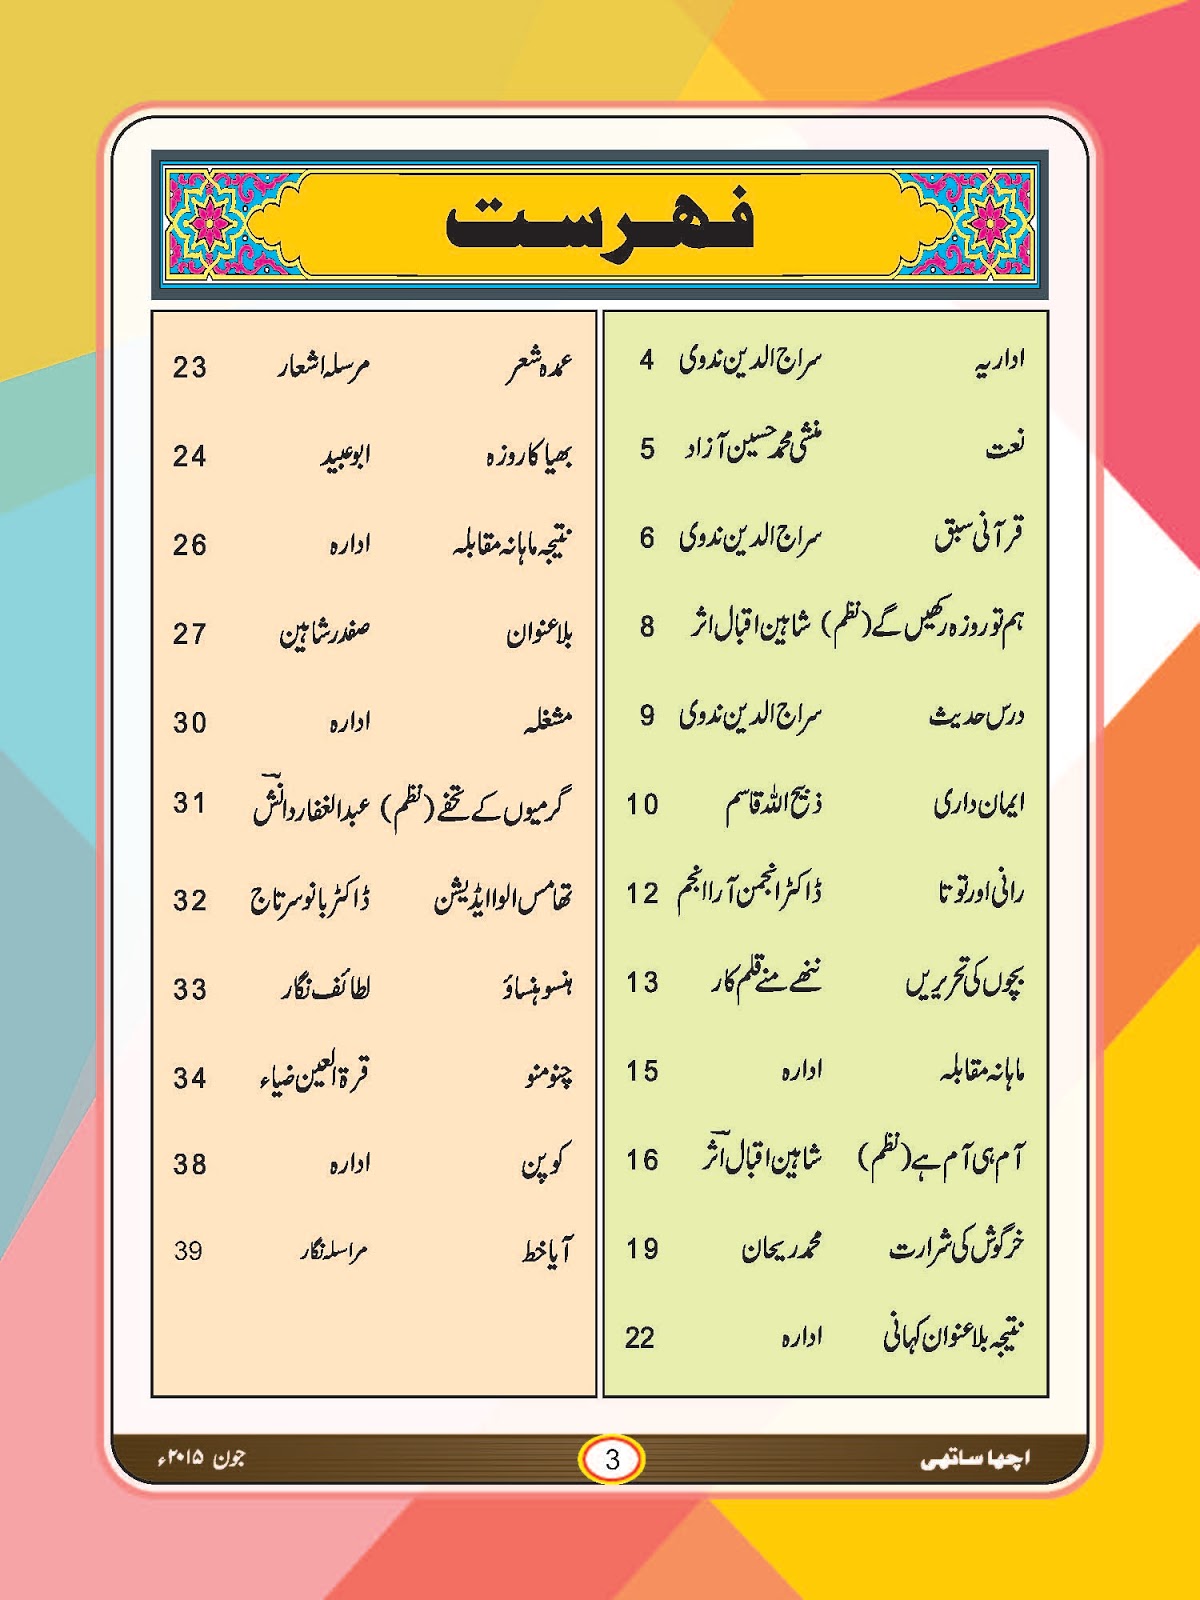 فہرست
اداریہ سراج الدین ندوی 4
نعت منشی محمد حسین آزاد 5
قرآنی سبق سراج الدین ندوی 6
ہم تو روزہ رکھیں گے (نظم) شاہین اقبال اثر 8
درس حدیث سراج الدین ندوی 9
ایمان داری ذبیح اللہ قاسم 10
رانی اور توتا ڈاکٹر انجمن آرا انجم 12
بچوں کی تحریریں ننھے منے قلم کار 13
ماہانہ مقابلہ ادارہ 15
آم ہی آم ہے (نظم) شاہین اقبال اثرؔ 16
خرگوش کی شرارت محمد ریحان 19
نتیجہ بلا عنوان کہانی ادارہ 22
عمدہ شعر مرسلہ اشعار 23
بھیا کا روزہ ابو عبید 24
نتیجہ ماہانہ مقابلہ ادارہ 26
بلا عنوان صفدر شاہین 27
مشغلہ ادارہ 30
گرمیوں کے تحفے (نظم) عبدالغفار دانشؔ 31
تھامس الوا ایڈیشن ڈاکٹر بانو سرتاج 32
ہنسو ہنساؤ لطائف نگار 33
چنو منو قرۃ العین ضیاء 34
کوپن ادارہ 38
آیا خط مراسلہ نگار 39
اچھا ساتھی 3 جون ۲۰۱۵ء